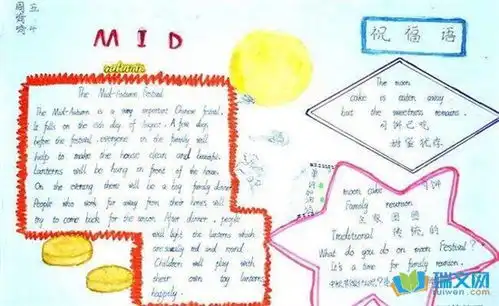 五
MID
autumn
祝福语
The Mid-Autumn Festival
The Mid-Autumn is a very important Chinese festival.
It falls on the 15th day of August. A few days
before the festival, everyone in the family will
help to make the house clean and beautiful.
Lanterns will be hung in front of the house.
On the evening there will be a big family dinner.
People who work far away from their homes will
try to come back for the union. After dinner, people
will light the lanterns which
are usually red and round.
Children will play with
their own toy lanterns
happily.
The moon
cake is eaten away
but the sweetness remains.
月饼已吃
甜蜜犹存
moon cake 月饼
Family reunion
全家团圆
Traditional 传统的
What do you do on moon Festival?
It's a time for family reunion.
瑞文网
ruiwen.com